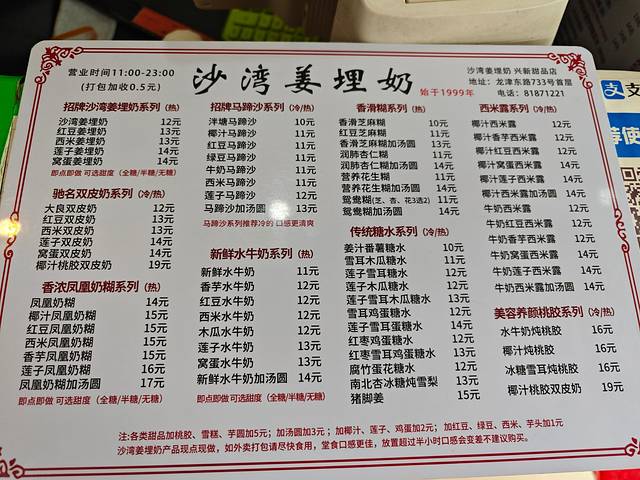 营业时间11:00-23:00
(打包加收0.5元)
沙湾姜埋奶
始于1999年
沙湾姜埋奶 兴新甜品店
地址：龙津东路733号首层
电话：81871221
招牌沙湾姜埋奶系列(热)
沙湾姜埋奶 12元
红豆姜埋奶 13元
西米姜埋奶 13元
莲子姜埋奶 14元
窝蛋姜埋奶 14元
即点即做 可选甜度（全糖/半糖/无糖）
驰名双皮奶系列(冷/热)
大良双皮奶 12元
红豆双皮奶 13元
西米双皮奶 13元
莲子双皮奶 14元
窝蛋双皮奶 14元
椰汁桃胶双皮奶 19元
香浓凤凰奶糊系列(热)
凤凰奶糊 14元
椰汁凤凰奶糊 15元
红豆凤凰奶糊 15元
西米凤凰奶糊 15元
香芋凤凰奶糊 15元
莲子凤凰奶糊 16元
凤凰奶糊加汤圆 17元
即点即做 可选甜度（全糖/半糖/无糖）
招牌马蹄沙系列(冷/热)
泮塘马蹄沙 10元
椰汁马蹄沙 11元
红豆马蹄沙 11元
绿豆马蹄沙 11元
牛奶马蹄沙 11元
西米马蹄沙 11元
莲子马蹄沙 12元
马蹄沙加汤圆 13元
马蹄沙系列推荐冷的 口感更清爽
新鲜水牛奶系列(热)
新鲜水牛奶 11元
香芋水牛奶 12元
红豆水牛奶 12元
西米水牛奶 12元
木瓜水牛奶 12元
莲子水牛奶 13元
窝蛋水牛奶 13元
新鲜水牛奶加汤圆 14元
即点即做 可选甜度（全糖/半糖/无糖）
香滑糊系列(热)
香滑芝麻糊 10元
红豆芝麻糊 11元
香滑芝麻糊加汤圆 13元
润肺杏仁糊 11元
润肺杏仁糊加汤圆 14元
营养花生糊 11元
营养花生糊加汤圆 14元
鸳鸯糊(芝、杏、花3选2) 11元
鸳鸯糊加汤圆 14元
传统糖水系列(冷/热)
姜汁番薯糖水 10元
雪耳木瓜糖水 11元
莲子雪耳糖水 12元
莲子木瓜糖水 12元
莲子雪耳木瓜糖水 13元
雪耳鸡蛋糖水 12元
莲子雪耳鸡蛋糖水 14元
红枣鸡蛋糖水 12元
红枣雪耳鸡蛋糖水 13元
腐竹蛋花糖水 12元
南北杏冰糖炖雪梨 13元
猪脚姜 15元
西米露系列(冷/热)
椰汁西米露 12元
椰汁香芋西米露 12元
椰汁红豆西米露 12元
椰汁窝蛋西米露 14元
椰汁莲子西米露 14元
椰汁西米露加汤圆 14元
牛奶西米露 12元
牛奶红豆西米露 12元
牛奶香芋西米露 12元
牛奶窝蛋西米露 14元
牛奶莲子西米露 14元
牛奶西米露加汤圆 14元
美容养颜桃胶系列(冷/热)
水牛奶炖桃胶 16元
椰汁炖桃胶 16元
冰糖雪耳炖桃胶 16元
椰汁桃胶双皮奶 19元
注:各类甜品加桃胶、雪糕、芋圆加5元；加汤圆加3元；加椰汁、莲子、鸡蛋加2元；加红豆、绿豆、西米、芋头加1元
沙湾姜埋奶产品现点现做，如外卖打包请尽快食用，堂食口感更佳，放置超过半小时口感会变差不建议购买。
支